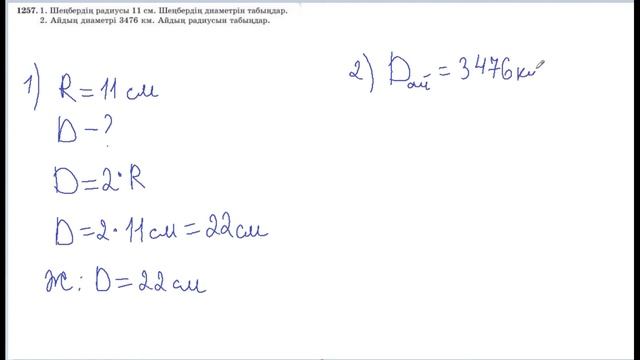 1257. 1. Шеңбердің радиусы 11 см. Шеңбердің диаметрін табыңдар.
2. Айдың диаметрі 3476 км. Айдың радиусын табыңдар.
1) R = 11 см
D - ?
D = 2 · R
D = 2 · 11 см = 22 см
Ж: D = 22 см
2) Dай = 3476 км